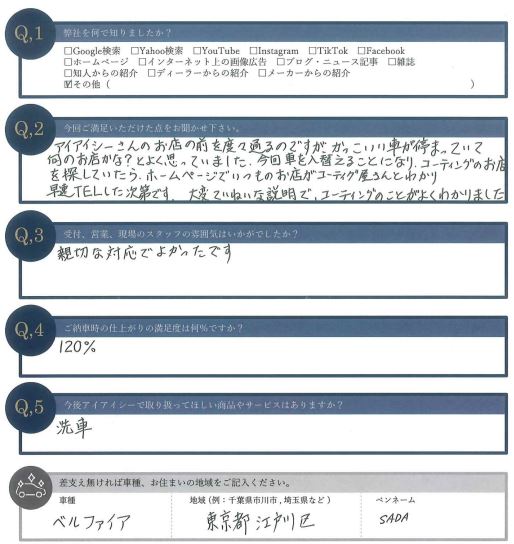 Q,1
弊社を何で知りましたか？
☐Google検索 ☐Yahoo検索 ☐YouTube ☐Instagram ☐TikTok ☐Facebook
☐ホームページ ☐インターネット上の画像広告 ☐ブログ・ニュース記事 ☐雑誌
☐知人からの紹介 ☐ディーラーからの紹介 ☐メーカーからの紹介
☑その他（ ）
Q,2
今回ご満足いただけた点をお聞かせ下さい。
アイアイシーさんのお店の前を度々通るのですが かっこいい車が停まっていて
何のお店かな？とよく思っていました. 今回車を入替えることになり、コーティングのお店
を探していたら、ホームページでいつものお店がコーティング屋さんとわかり
早速TELした次第です. 大変ていねいな説明で、コーティングのことがよくわかりました
Q,3
受付、営業、現場のスタッフの雰囲気はいかがでしたか？
親切な対応でよかったです
Q,4
ご納車時の仕上がりの満足度は何%ですか？
120%
Q,5
今後アイアイシーで取り扱ってほしい商品やサービスはありますか？
洗車
差支え無ければ車種、お住まいの地域をご記入ください。
車種 地域（例：千葉県市川市，埼玉県など） ペンネーム
ベルファイア 東京都 江戸川区 SADA